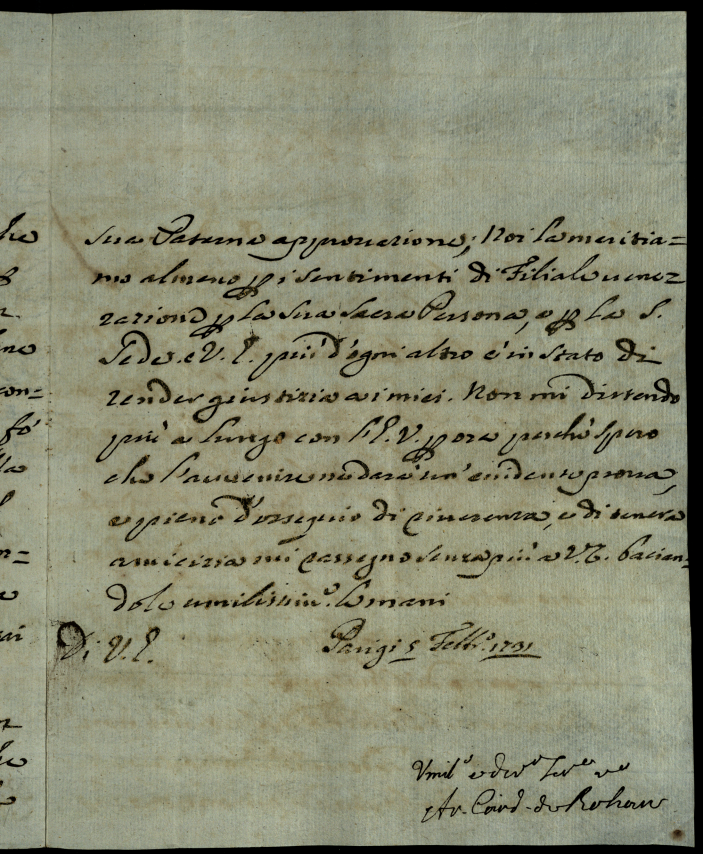 sua Paterna approvazione; Noi la meritia=
mo almeno p i sentimenti di Filiale vene=
razione p la Sua Sacra Persona, e p la S.
Sede. e V. E. più d'ogni altro è in stato di
render giustizia ai miei. Non mi distendo
più a lungo con l'E. V. p ora perchè spero
che l'avvenire ne darà un'evidente prova,
e pieno d'ossequio di riverenza, e di tenera
amicizia mi rassegno senza più a V. E. bacian=
dole umilissim.e le mani
Di V. E.
Parigi 5 Febb.o 1731
Umil.o e dev.o Ser.e v.o
Ar. Card. de Rohan
he
ne
con=
fó
lla
n=